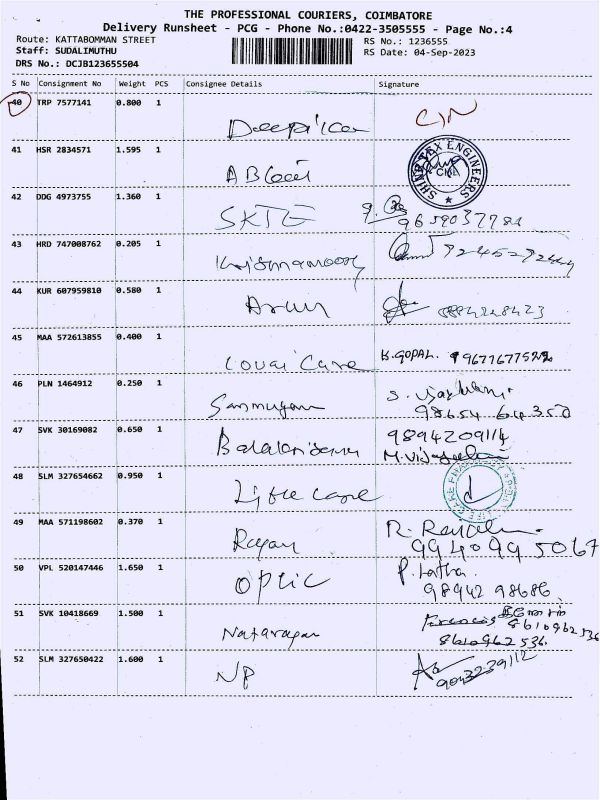 THE PROFESSIONAL COURIERS, COIMBATORE
Delivery Runsheet - PCG - Phone No.:0422-3505555 - Page No.:4
Route: KATTABOMMAN STREET RS No.: 1236555
Staff: SUDALIMUTHU RS Date: 04-Sep-2023
DRS No.: DCJB123655504
S No Consignment No Weight PCS Consignee Details Signature
40 TRP 7577141 0.800 1
41 HSR 2834571 1.595 1
SHINE TEX ENGINEERS
CBE
42 DDG 4973755 1.360 1
SKTE
9659037784
43 HRD 747008762 0.205 1
Krishnamoorthy
44 KUR 607959810 0.580 1
Arun
45 MAA 572613855 0.400 1
Care K.GOPAL.
46 PLN 1464912 0.250 1
Sanmugam
98654 64350
47 SVK 30169082 0.650 1 9894209114
M.Vijayalakshmi
48 SLM 327654662 0.950 1
Life care
49 MAA 571198602 0.370 1
Rajan 9940995067
50 VPL 520147446 1.650 1 P. Latha
Optic 98942 98686
51 SVK 10418669 1.500 1
Francis 8610962536
Natarajan 8610962536
52 SLM 327650422 1.600 1
NP